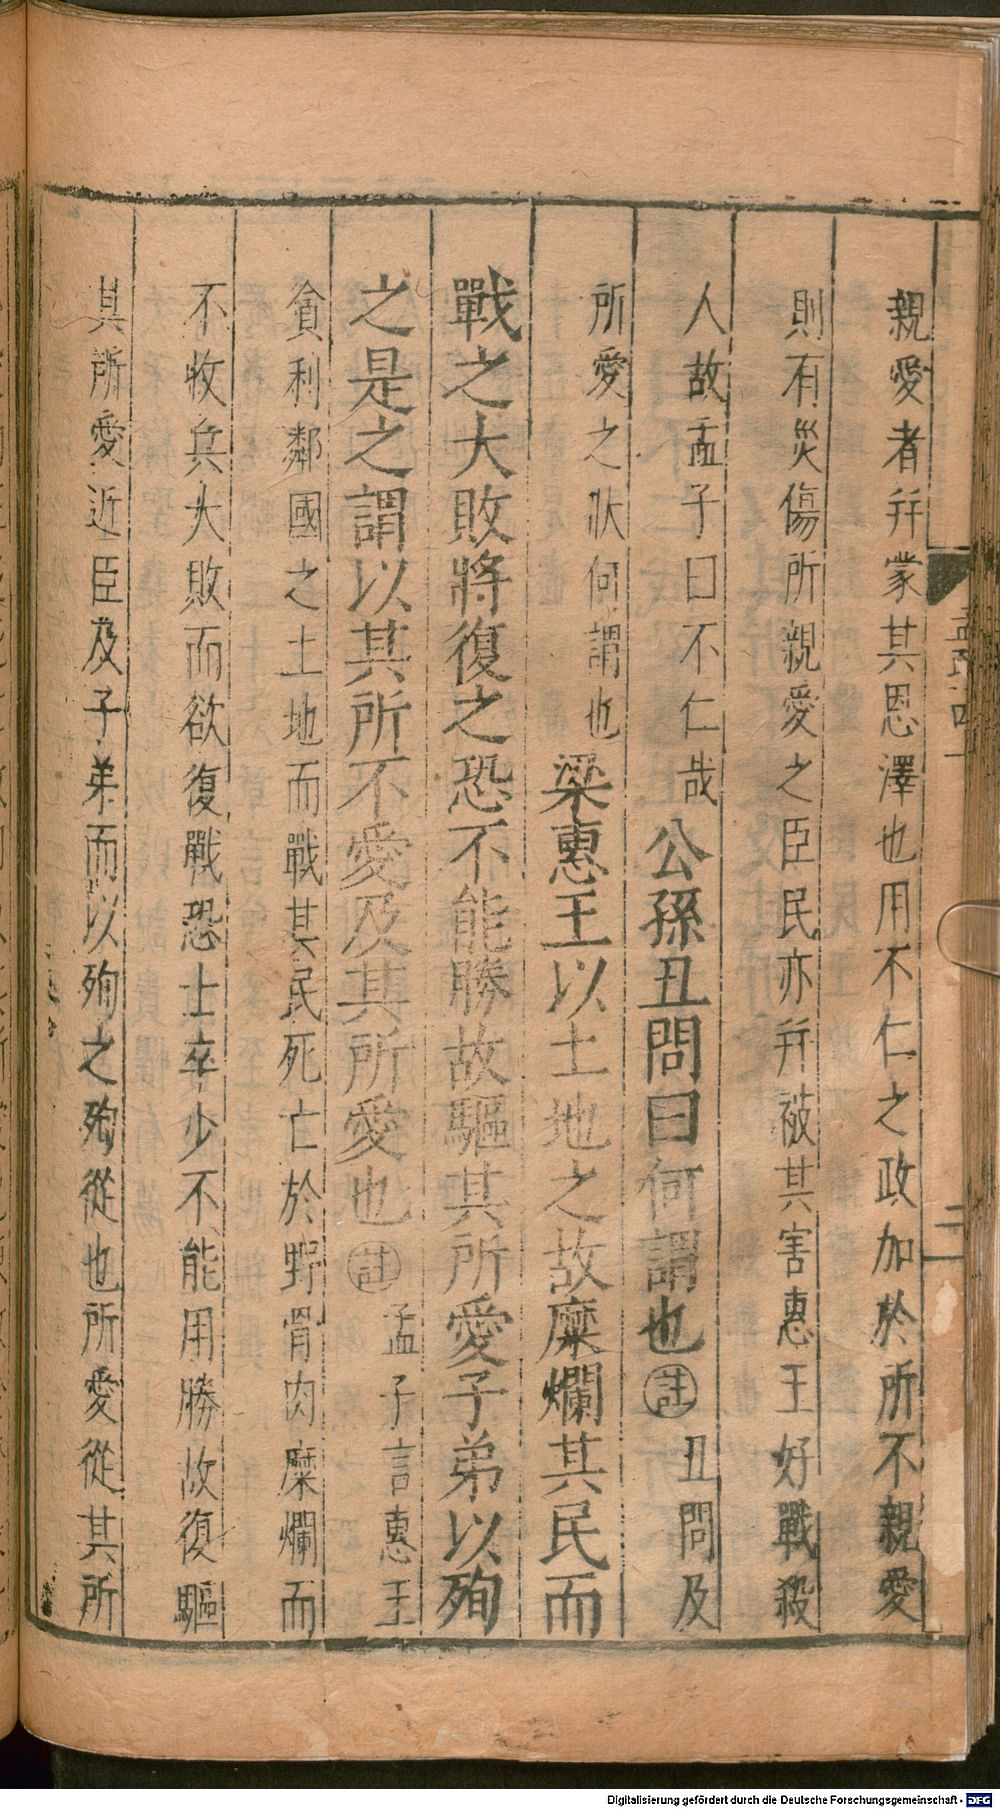 親愛者幷蒙其恩澤也用不仁之政加於所不親愛
則有災傷所親愛之臣民亦幷被其害惠王好戰殺
人故孟子曰不仁哉公孫丑問曰何謂也註丑問及
所愛之狀何謂也梁惠王以土地之故糜爛其民而
戰之大敗將復之恐不能勝故驅其所愛子弟以殉
之是之謂以其所不愛及其所愛也註孟子言惠王
貪利鄰國之土地而戰其民死亡於野骨肉糜爛而
不收兵大敗而欲復戰恐士卒少不能用勝故復驅
其所愛近臣及子弟而以殉之殉從也所愛從其所
二
Digitalisierung gefördert durch die Deutsche Forschungsgemeinschaft - DFG